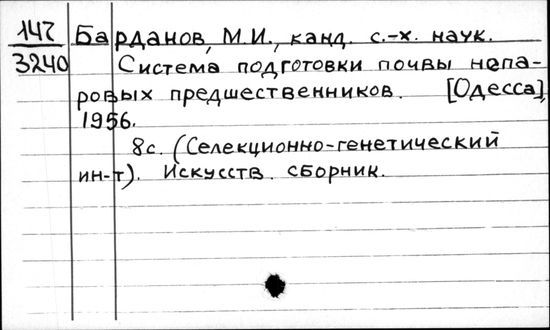 147
3240
Барданов, М.И., канд. с.-х. наук.
Система подготовки почвы непа-
ровых предшественников. [Одесса],
1956.
8с. (Селекционно-генетический
ин-т). Искусств. сборник.